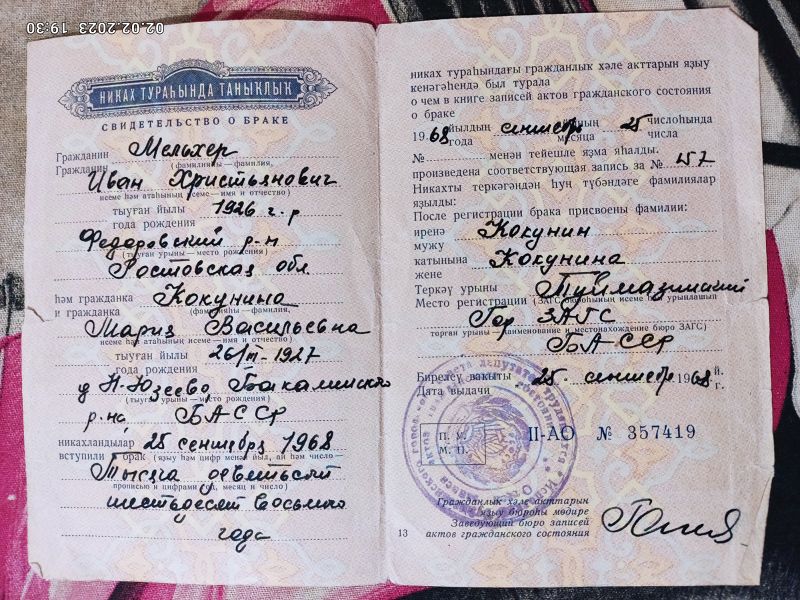 02.02.2023 19:30
НИКАХ ТУРАҺЫНДА ТАНЫҠЛЫҠ
СВИДЕТЕЛЬСТВО О БРАКЕ
Гражданин Мельхер
Гражданин (фамилияһы — фамилия,
Иван Христьянович
исеме һәм атаһының исеме — имя и отчество)
тыуған йылы 1926 г.р
года рождения
Федоровский р-н
(тыуған урыны — место рождения)
Ростовская обл
һәм гражданка Кокунина
и гражданка (фамилияһы — фамилия,
Мария Васильевна
исеме һәм атаһының исеме — имя и отчество)
тыуған йылы 26/III-1927
года рождения
д Н-Юзеево Бакалинского
(тыуған урыны — место рождения)
р-на БАССР
никахландылар 25 сентября 1968
вступили в брак (яҙыу һәм цифр менән йыл, ай һәм число —
Тысяча девятьсот
прописью и цифрами год, месяц и число)
шестьдесят восьмого
года
никах тураһындағы гражданлыҡ хәле акттарын яҙыу
кенәгәһендә был турала
о чем в книге записей актов гражданского состояния
о браке
1968 йылдың сентябрь айының 25 числоһында
года месяца числа
№ менән тейешле яҙма яһалды.
произведена соответствующая запись за № 157
Никахты теркәгәндән һуң түбәндәге фамилиялар
яҙылды:
После регистрации брака присвоены фамилии:
иренә Кокунин
мужу
ҡатынына Кокунина
жене
Теркәү урыны Туймазинский
Место регистрации (ЗАГС бюроһының исеме һәм урынлашып
Гор ЗАГС
торған урыны — наименование и местонахождение бюро ЗАГС)
БАССР
Бирелеү ваҡыты 25. сентябрь 1968 й.
Дата выдачи г.
П. У.
М. П.
II-АО № 357419
Гражданлыҡ хәле акттарын
яҙыу бюроһы мөдире
Заведующий бюро записей
актов гражданского состояния
13